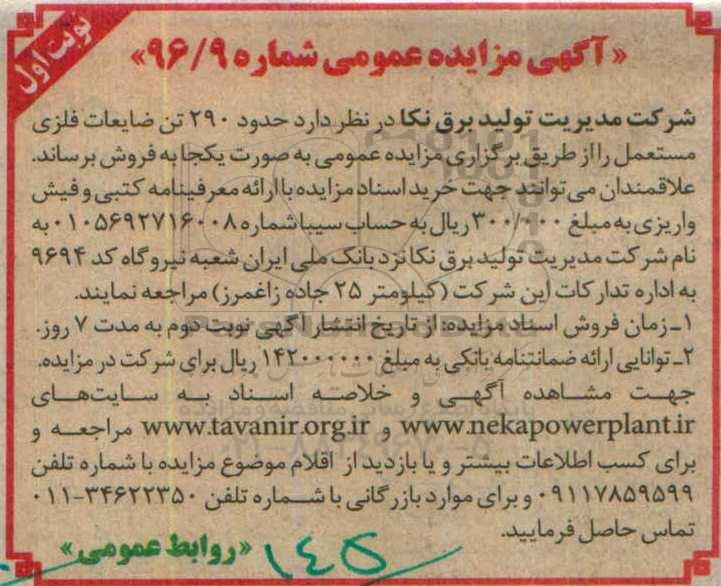 نوبت اول
«آگهی مزایده عمومی شماره ۹۶/۹»
شرکت مدیریت تولید برق نکا در نظر دارد حدود ۲۹۰ تن ضایعات فلزی
مستعمل را از طریق برگزاری مزایده عمومی به صورت یکجا به فروش برساند.
علاقمندان می‌توانند جهت خرید اسناد مزایده با ارائه معرفینامه کتبی و فیش
واریزی به مبلغ ۳۰۰/۰۰۰ ریال به حساب سیبا شماره ۰۱۰۵۶۹۲۷۱۶۰۰۸ به
نام شرکت مدیریت تولید برق نکا نزد بانک ملی ایران شعبه نیروگاه کد ۹۶۹۴
به اداره تدارکات این شرکت (کیلومتر ۲۵ جاده زاغمرز) مراجعه نمایند.
۱ـ زمان فروش اسناد مزایده: از تاریخ انتشار آگهی نوبت دوم به مدت ۷ روز.
۲ـ توانایی ارائه ضمانتنامه بانکی به مبلغ ۱۴۲۰۰۰۰۰۰ ریال برای شرکت در مزایده.
جهت مشاهده آگهی و خلاصه اسناد به سایت‌های
www.nekapowerplant.ir و www.tavanir.org.ir مراجعه و
برای کسب اطلاعات بیشتر و یا بازدید از اقلام موضوع مزایده با شماره تلفن
۰۹۱۱۷۸۵۹۵۹۹ و برای موارد بازرگانی با شماره تلفن ۳۴۶۲۲۳۵۰-۰۱۱
تماس حاصل فرمایید.
«روابط عمومی»
۱۴۵